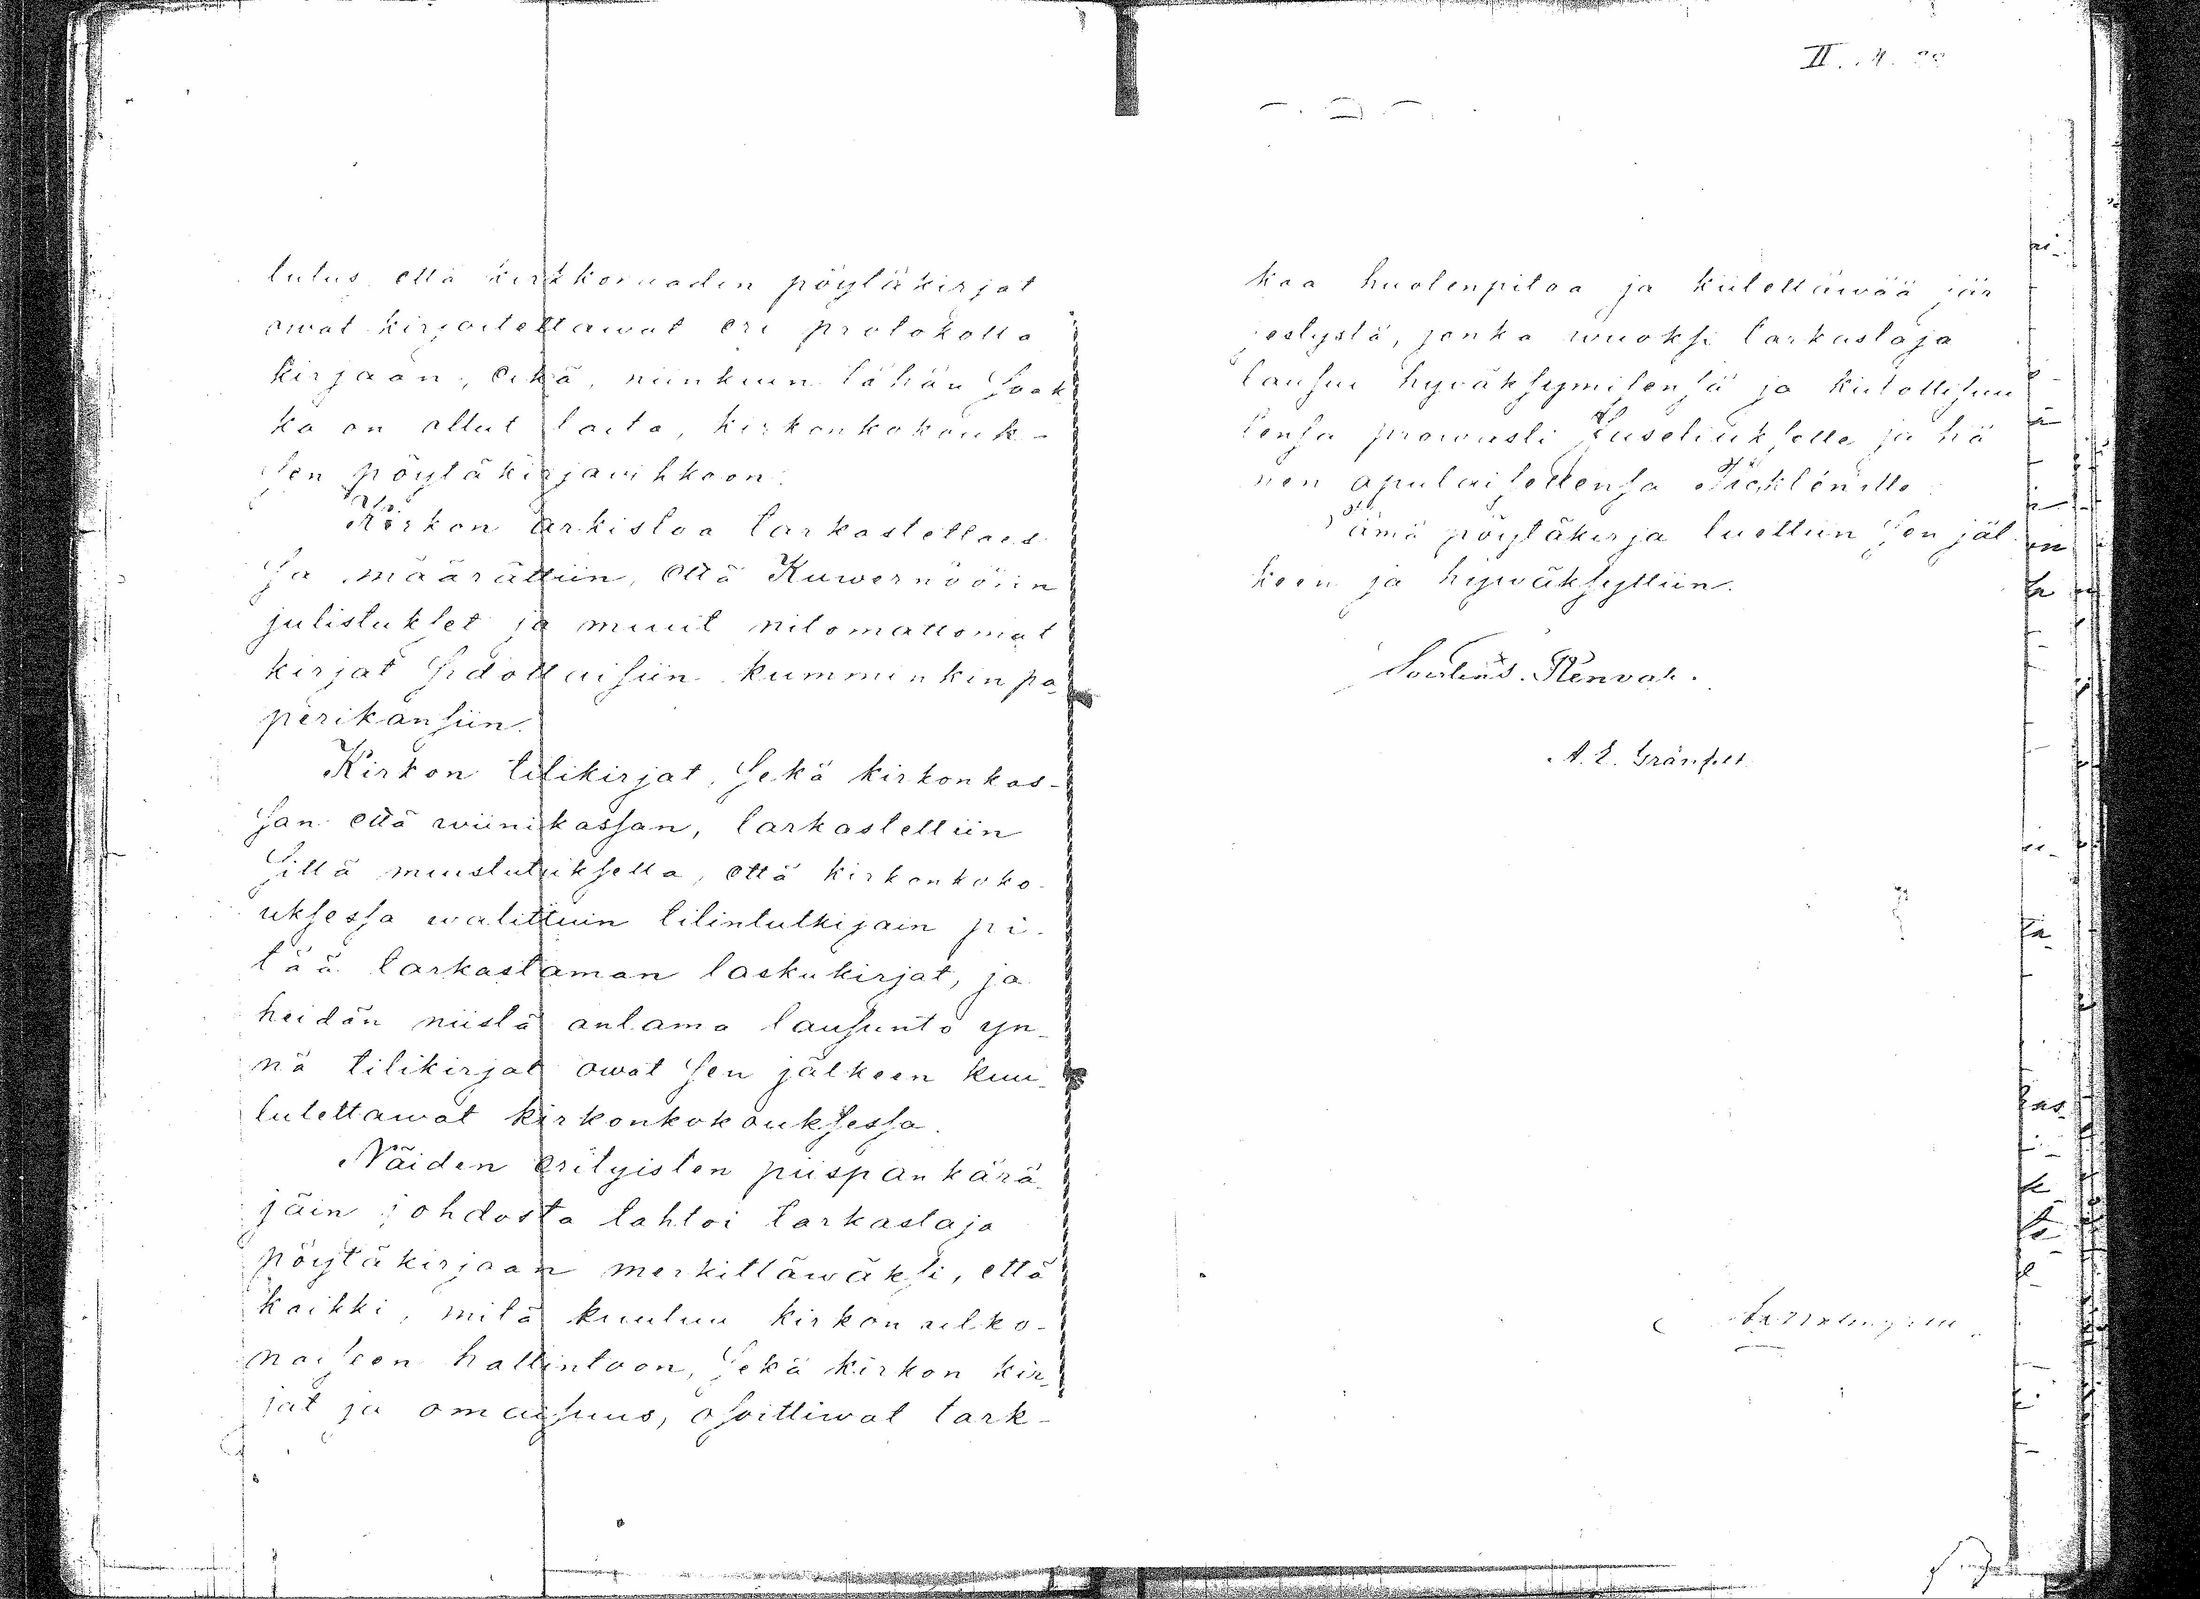 tutus että kirkkoraadin pöytäkirjat
owat kirjoitettawat eri protokolla
kirjaan, eikä, niinkuin tähän saak
ka on ollut laita, kirkonkokouk-
sen pöytäkirjavihkoon.
Kirkon arkistoa tarkastettaes
sa määrättiin, että Kuwernöörin
julistukset ja muut nitomattomat
kirjat sidottaisiin kumminkin pa-
perikansiin.
Kirkon tilikirjat, sekä kirkonkas-
san että wiinikassan, tarkastettiin
sillä muistutuksella, että kirkonkoko-
uksessa walittuin tilintutkijain pi-
tää tarkastaman laskukirjat, ja
heidän niistä antama lausunto yn-
nä tilikirjat owat sen jälkeen kuu-
lutettawat kirkonkokouksessa.
Näiden erityisten piispankärä-
jäin johdosta tahtoi tarkastaja
pöytäkirjaan merkittäwäksi, että
kaikki, mitä kuuluu kirkon ulko-
naiseen hallintoon, sekä kirkon kir-
jat ja omaisuus, osoittiwat tark-
II. 4.
kaa huolenpitoa ja kiitettäwää jär
jestystä, jonka wuoksi tarkastaja
lausui hyväksymisensä ja kiitollisuu
tensa prowasti Zuseliukselle ja hä
nen apulaisellensa
Tämä pöytäkirja luettiin sen jäl
keen ja hywäksyttiin.
Renvall.
A. L. Gränfelt